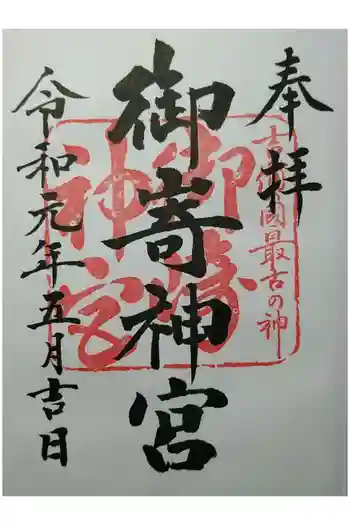 奉拝
吉備國最古の神
御嵜神宮
御
神宮
令和元年五月吉日